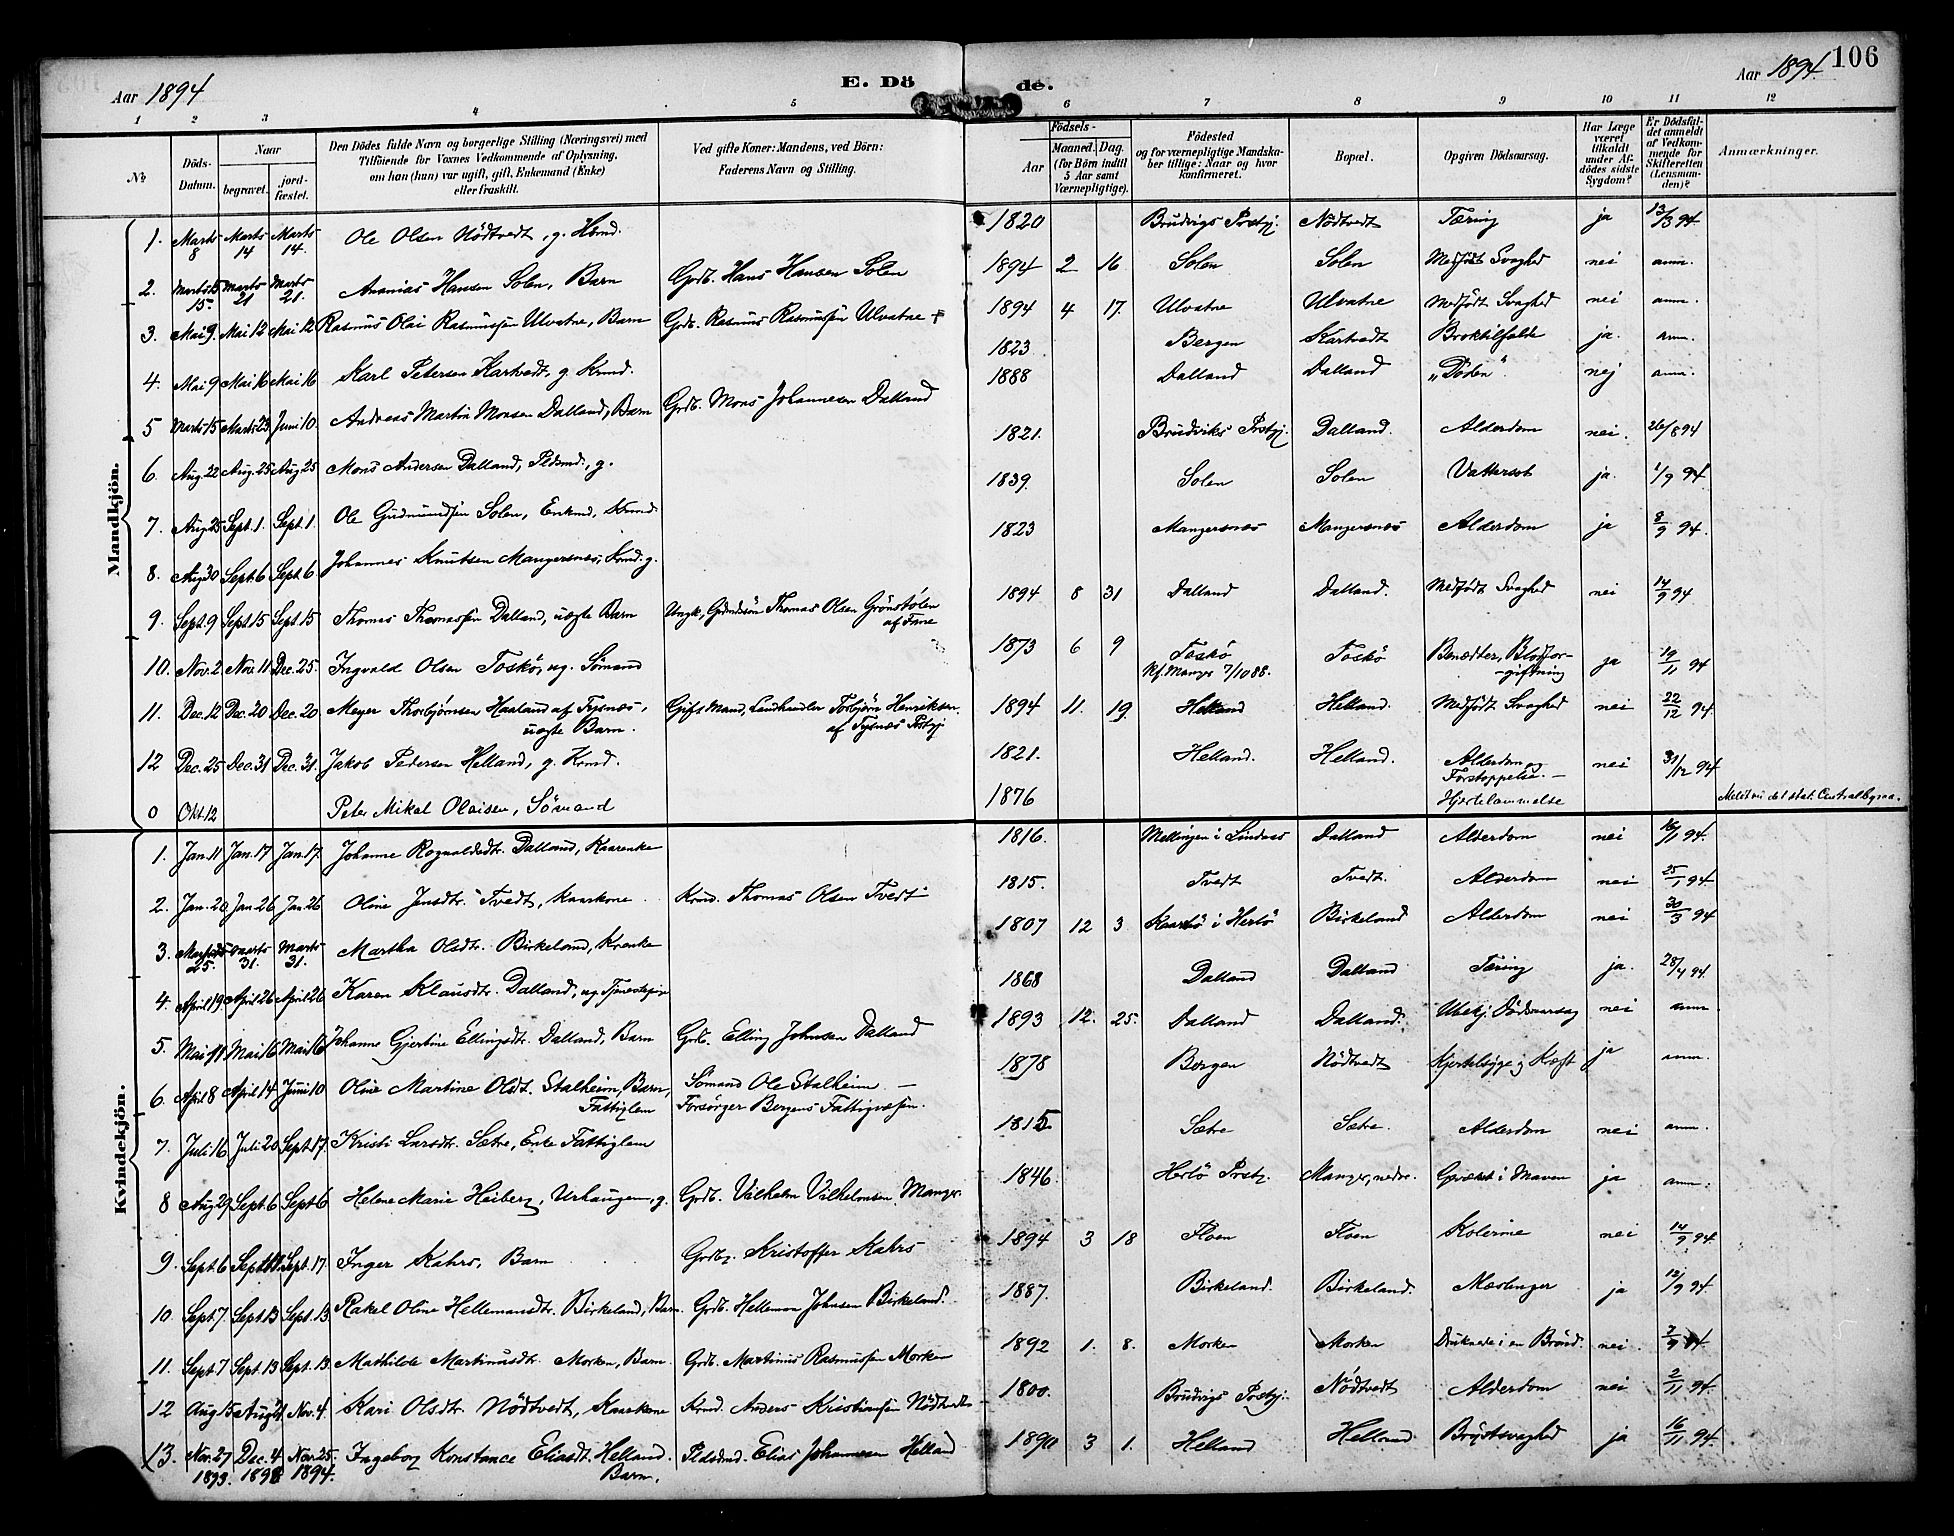 Aar 1894
E. Dö de.
Aar 1894. 106
1 2 3 4 5 6 7 8 9 10 11 12
№
Döds-Datum.
Naar
begravet. jord-fæstet.
Den Dödes fulde Navn og borgerlige Stilling (Næringsvei) med Tilföiende for Voxnes Vedkommende af Oplysning, om han (hun) var ugift, gift, Enkemand (Enke) eller fraskilt.
Ved gifte Koner: Mandens, ved Börn: Faderens Navn og Stilling.
Födsels-
Aar
Maaned. Dag.
(for Börn indtil 5 Aar samt Værnepligtige).
Födested og for værnepligtige Mandskaber tillige: Naar og hvor konfirmeret.
Bopæl.
Opgiven Dödsaarsag.
Har Læge været tilkaldt under Afdödes sidste Sygdom?
Er Dödsfaldet anmeldt af Vedkommende for Skifteretten (Lensmanden)?
Anmærkninger.
Mandkjön.
1. Marts 8 Marts 14 Marts 14. Ole Olsen Nödtvedt, g. 1820 Brudvigs Prstgj. Nödtvedt Tæring ja 13/3 94
2. Marts 15 15. Marts 21 Marts 21. Ananias Hansen Solen, Barn Grdb. Hans Hansen Solen 1894 2 16 Solen Solen Medfödt Svaghed nei anm.
3. Mai 9. Mai 12 Mai 12 Rasmus Olai Rasmussen Ulvatne, Barn Grdb. Rasmus Rasmussen Ulvatne 1894 4 17. Ulvatne Ulvatne Medfödt Svaghed nei anm.
4. Mai 9 Mai 16 Mai 16 Karl Petersen Kartvedt, g. Krmd. 1823 Bergen Kartvedt Broktilfælde ja. anm.
5 Marts 15 Marts 23 Juni 10. Andreas Martin Monsen Dalland, Barn Grdb. Mons Johannesen Dalland 1888 Dalland Dalland „Döden". nej anm.
6. Aug. 22 Aug. 25 Aug. 25 Mons Andersen Dalland, Pldsmd., g. 1821. Brudviks Prstgj. Dalland. Alderdom nei. 26/8 94
7. Aug 25 Sept. 1. Sept. 1. Ole Gudmundsen Solen, Enkmd., Krmd. 1839. Solen Solen Vattersot ja. 1/9 94
8. Aug 30 Sept. 6 Sept. 6 Johannes Knutsen Mangersnes, Krmd. g. 1823 Mangersnes Mangersnes Alderdom ja 8/9 94.
9. Sept. 9 Sept 15 Sept. 15 Thomas Thomassen Dalland, uægte Barn Ungk., Gaardssön Thomas Olsen Grönstölen af Fane 1894 8 31 Dalland Dalland. Medfödt Svaghed nei 14/9 94
10. Nov. 2 Nov. 11 Dec. 25. Ingvald Olsen Toskö, ug. Sömand 1873 6 9 Toskö Kf. Manger 7/10 88. Toskö Benædter, Blodfor-giftning ja 19/11 94
11. Dec. 12 Dec. 20 Dec. 20 Meyer Thorbjörnsen Haaland af Tysnes, uægte Barn. Gift Mand, Landhandler Torbjörn Henriksen af Tysnes Prstgj 1894 11. 19. Helland Helland. Medfödt Svaghed nei 22/12 94.
12 Dec. 25 Dec. 31 Dec. 31. Jakob Pedersen Helland, g. Krmd. 1821. Helland. Helland. Alderdom og Forstoppelse. nei 31/12 94
0 Okt. 12 Peter Mikal Olaisen, Sömand 1876 Hjertelammelse
Kvindekjön.
1. Jan. 11 Jan. 17 Jan. 17. Johanne Rognaldsdtr. Dalland, Kaarenke 1816. Mellingen i Lindaas Dalland Alderdom nei 16/1 94.
2. Jan. 20 Jan. 26 Jan. 26 Oline Jensdtr. Tvedt, Kaarkone. Krmd. Thomas Olsen Tvedt 1815. Tvedt Tvedt. Alderdom nei 25/1 94
3. Marts 25. Marts 31. Marts 31. Martha Olsdtr. Birkeland, Krenke 1807 12 3 Kaartö i Herlö Birkeland Alderdom nei 30/3 94
4. April 19 April 26 April 26 Karen Klausdtr. Dalland, ug. Tjenestepige 1868 Dalland Dalland Tæring ja. 28/4 94.
5. Mai 11 Mai 16 Mai 16 Johanne Gjertine Ellingsdtr. Dalland, Barn Grdb. Elling Johnsen Dalland 1893 12. 25. Dalland Dalland. Ubekj. Dödsaarsag nei anm
6. April 8 April 14 Juni 10 Oline Martine Olsdt. Stalheim, Barn, Fattiglem Sömand Ole Stalheim. — Forsörger Bergens Fattigvæsen. 1878 Bergen Nödtvedt Kjertelsyge og Kræft ja anm.
7. Juli 16 Juli 20 Sept. 17. Kristi Larsdtr. Sætre, Enke Fattiglem 1815 Sætre Sætre. Alderdom nei anm.
8 Aug. 29 Sept. 6 Sept. 6 Helene Marie Heiberg, Urhaugen, g. Grdb. Vilhelm Vilhelmsen Manger. 1846 Herlö Prstgj. Manger, nedre. Gevækst i Maven ja anm.
9. Sept. 6 Sept. Sept. 17 Inger Kahrs, Barn Grdbg. Kristoffer Kahrs 1894 3 18 Floen Floen Kolerine nei 14/9 94.
10 Sept. 7 Sept. 13 Sept. 13 Rakel Oline Hellemansdtr. Birkeland, Barn. Grdb. Helleman Johnsen Birkeland. 1887. Birkeland. Birkeland. Mæslinger ja 12/9 94
11. Sept. 7 Sept. 13 Sept. 13. Mathilde Martinusdtr. Morken, Barn. Grdb. Martinus Rasmussen Morken 1892 1. 8. Morken Morken Druknede i en Brönd. nei. 7/9 94
12 Aug. 15 Aug. 21 Nov. 4. Kari Olsdtr. Nödtvedt, Kaarkone Krmd. Anders Kristiansen Nödtvedt 1800. Brudvigs Prstgj. Nödtvedt Alderdom nei 2/11 94.
13. Nov. 27 1893. Dec. 4 1893 Nov. 25. 1894. Ingeborg Konstance Eliasdt. Helland. Barn. Pldsmd. Elias Johannesen Helland 1890 3 1. Helland Helland Brystsvaghed ja 16/11 94.